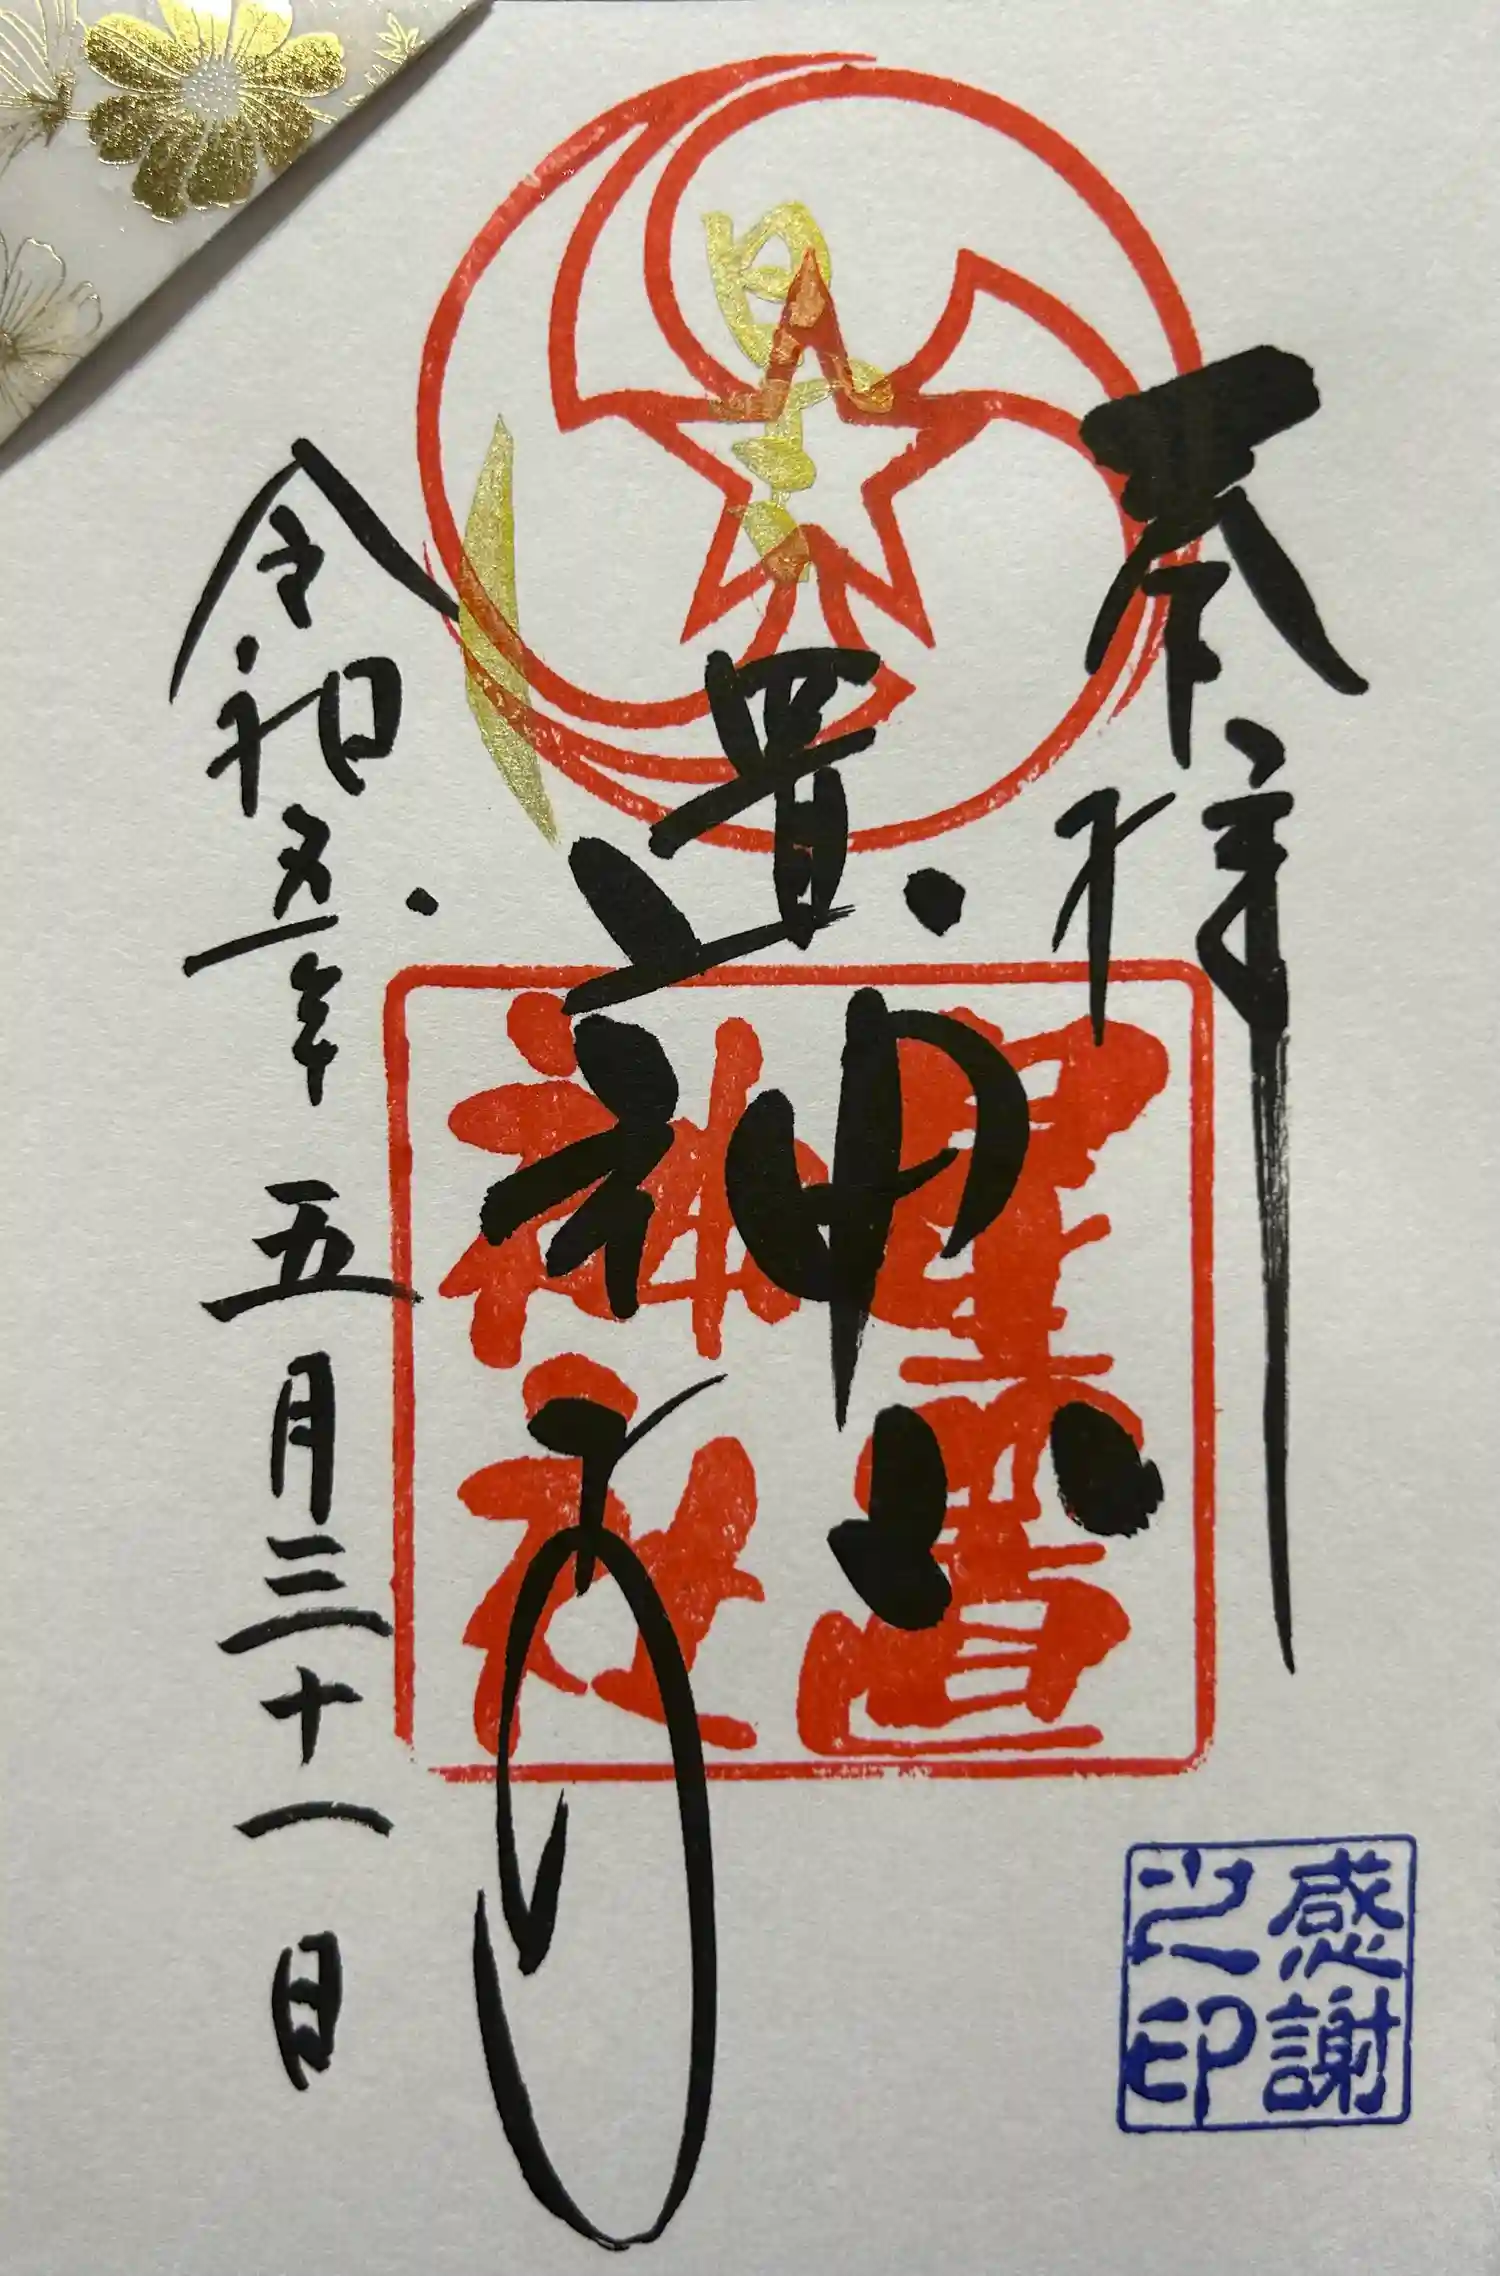 奉拝
星置神社
令和五年五月三十一日
星置
神社
感謝
之印